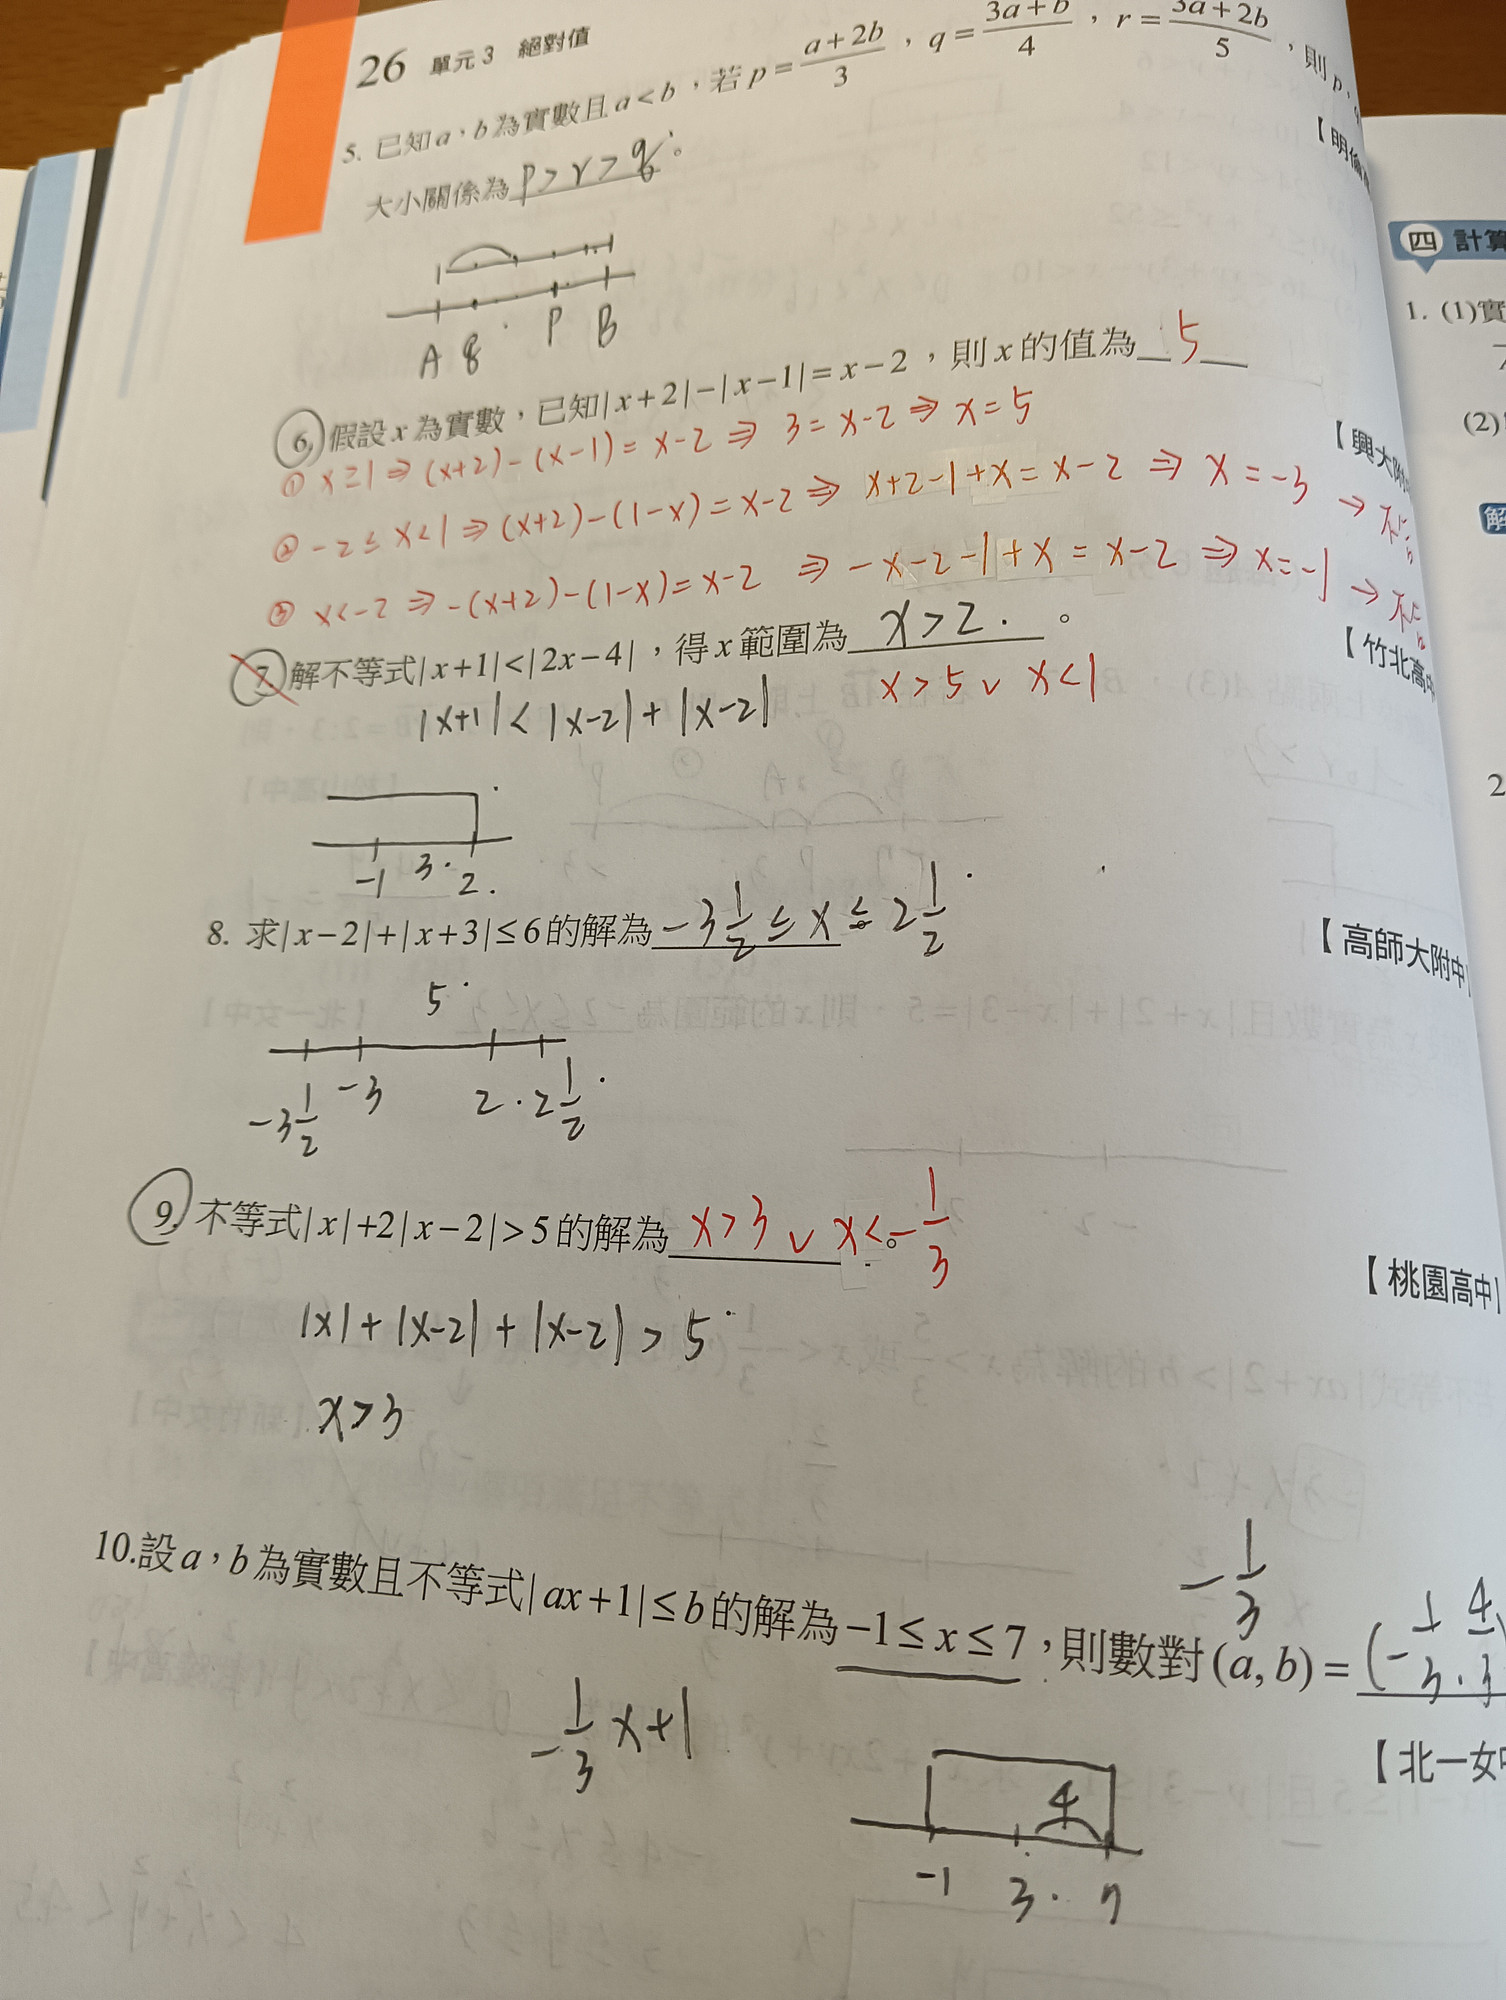 26 單元3 絕對值
5. 已知a,b為實數且a<b,若p=\frac{a+2b}{3},q=\frac{3a+b}{4},r=\frac{3a+2b}{5},則p,
【明倫
大小關係為 p>r>q。
A q P B
6. 假設x為實數,已知|x+2|-|x-1|=x-2,則x的值為 5
① x≥1⇒(x+2)-(x-1)=x-2⇒3=x-2⇒x=5
【興大附
② -2≤x<1⇒(x+2)-(1-x)=x-2⇒x+2-1+x=x-2⇒x=-3→不合
③ x<-2⇒-(x+2)-(1-x)=x-2⇒-x-2-1+x=x-2⇒x=-1→不合
7. 解不等式|x+1|<|2x-4|,得x範圍為 x>2.。
【竹北高中
x>5∨x<1
|x+1|<|x-2|+|x-2|
-1 3. 2.
8. 求|x-2|+|x+3|≤6的解為 -3\frac{1}{2}≤x≤2\frac{1}{2}
【高師大附中
5
-3\frac{1}{2} -3 2. 2\frac{1}{2}
9. 不等式|x|+2|x-2|>5的解為 x>3∨x<-\frac{1}{3}。
【桃園高中
|x|+|x-2|+|x-2|>5
x>3
10.設a,b為實數且不等式|ax+1|≤b的解為-1≤x≤7,則數對(a,b)=(-\frac{1}{3}.\frac{4}{3})
-\frac{1}{3}
【北一女中
-\frac{1}{3}x+1
4
-1 3. 7
四 計算
1. (1)實
(2)
解
2